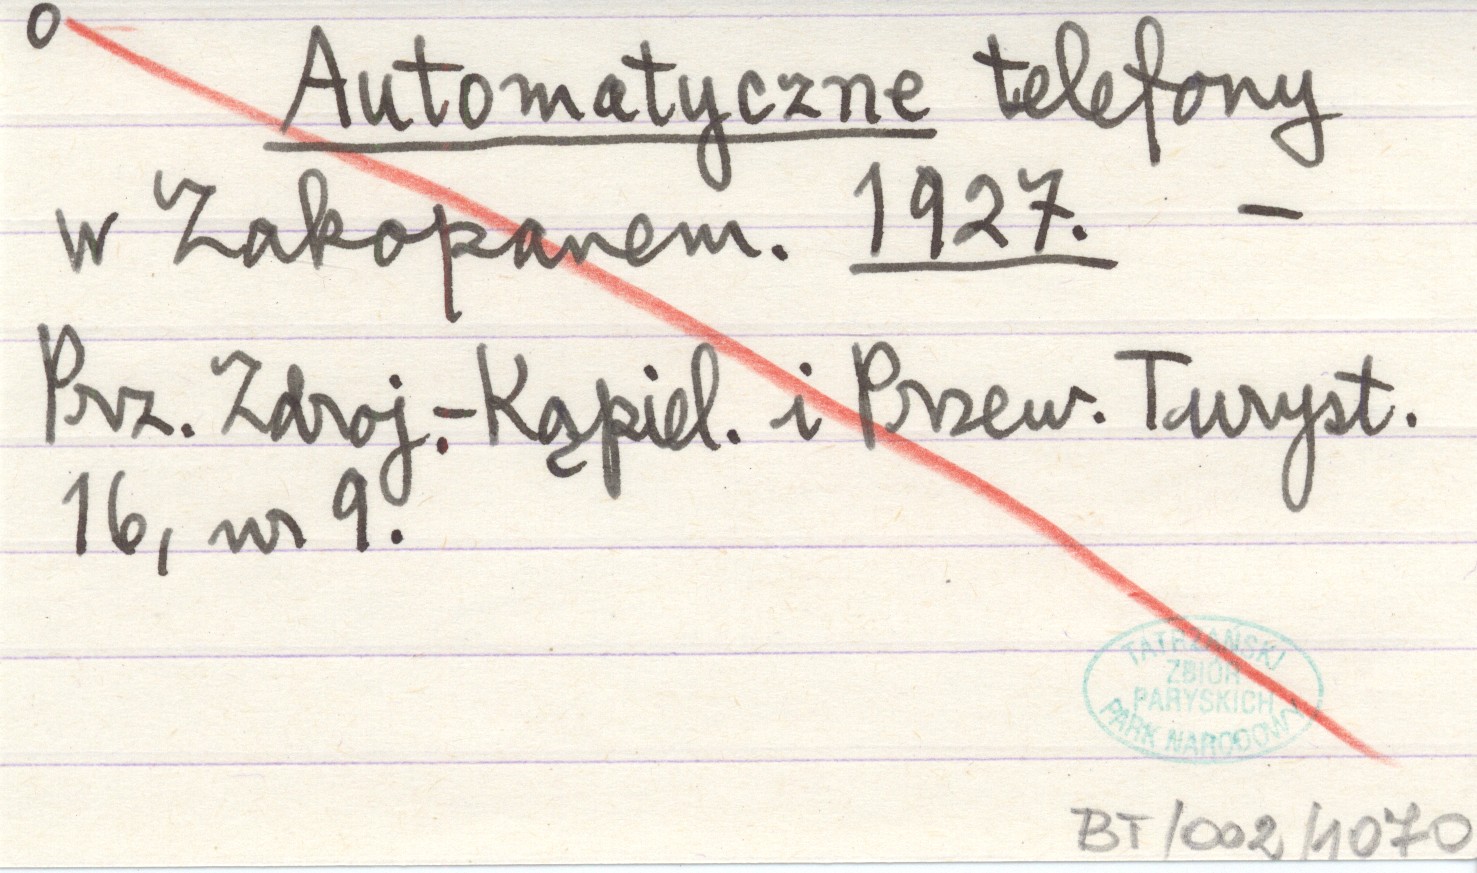 o
Automatyczne telefony
w Zakopanem. 1927. –
Prz. Zdroj.-Kąpiel. i Przew. Turyst.
16, nr 9.
TATRZAŃSKI
ZBIÓR
PARYSKICH
PARK NARODOWY
BT/002/1070